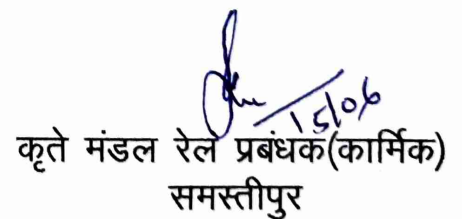 15/06
कृते मंडल रेल प्रबंधक(कार्मिक)
समस्तीपुर